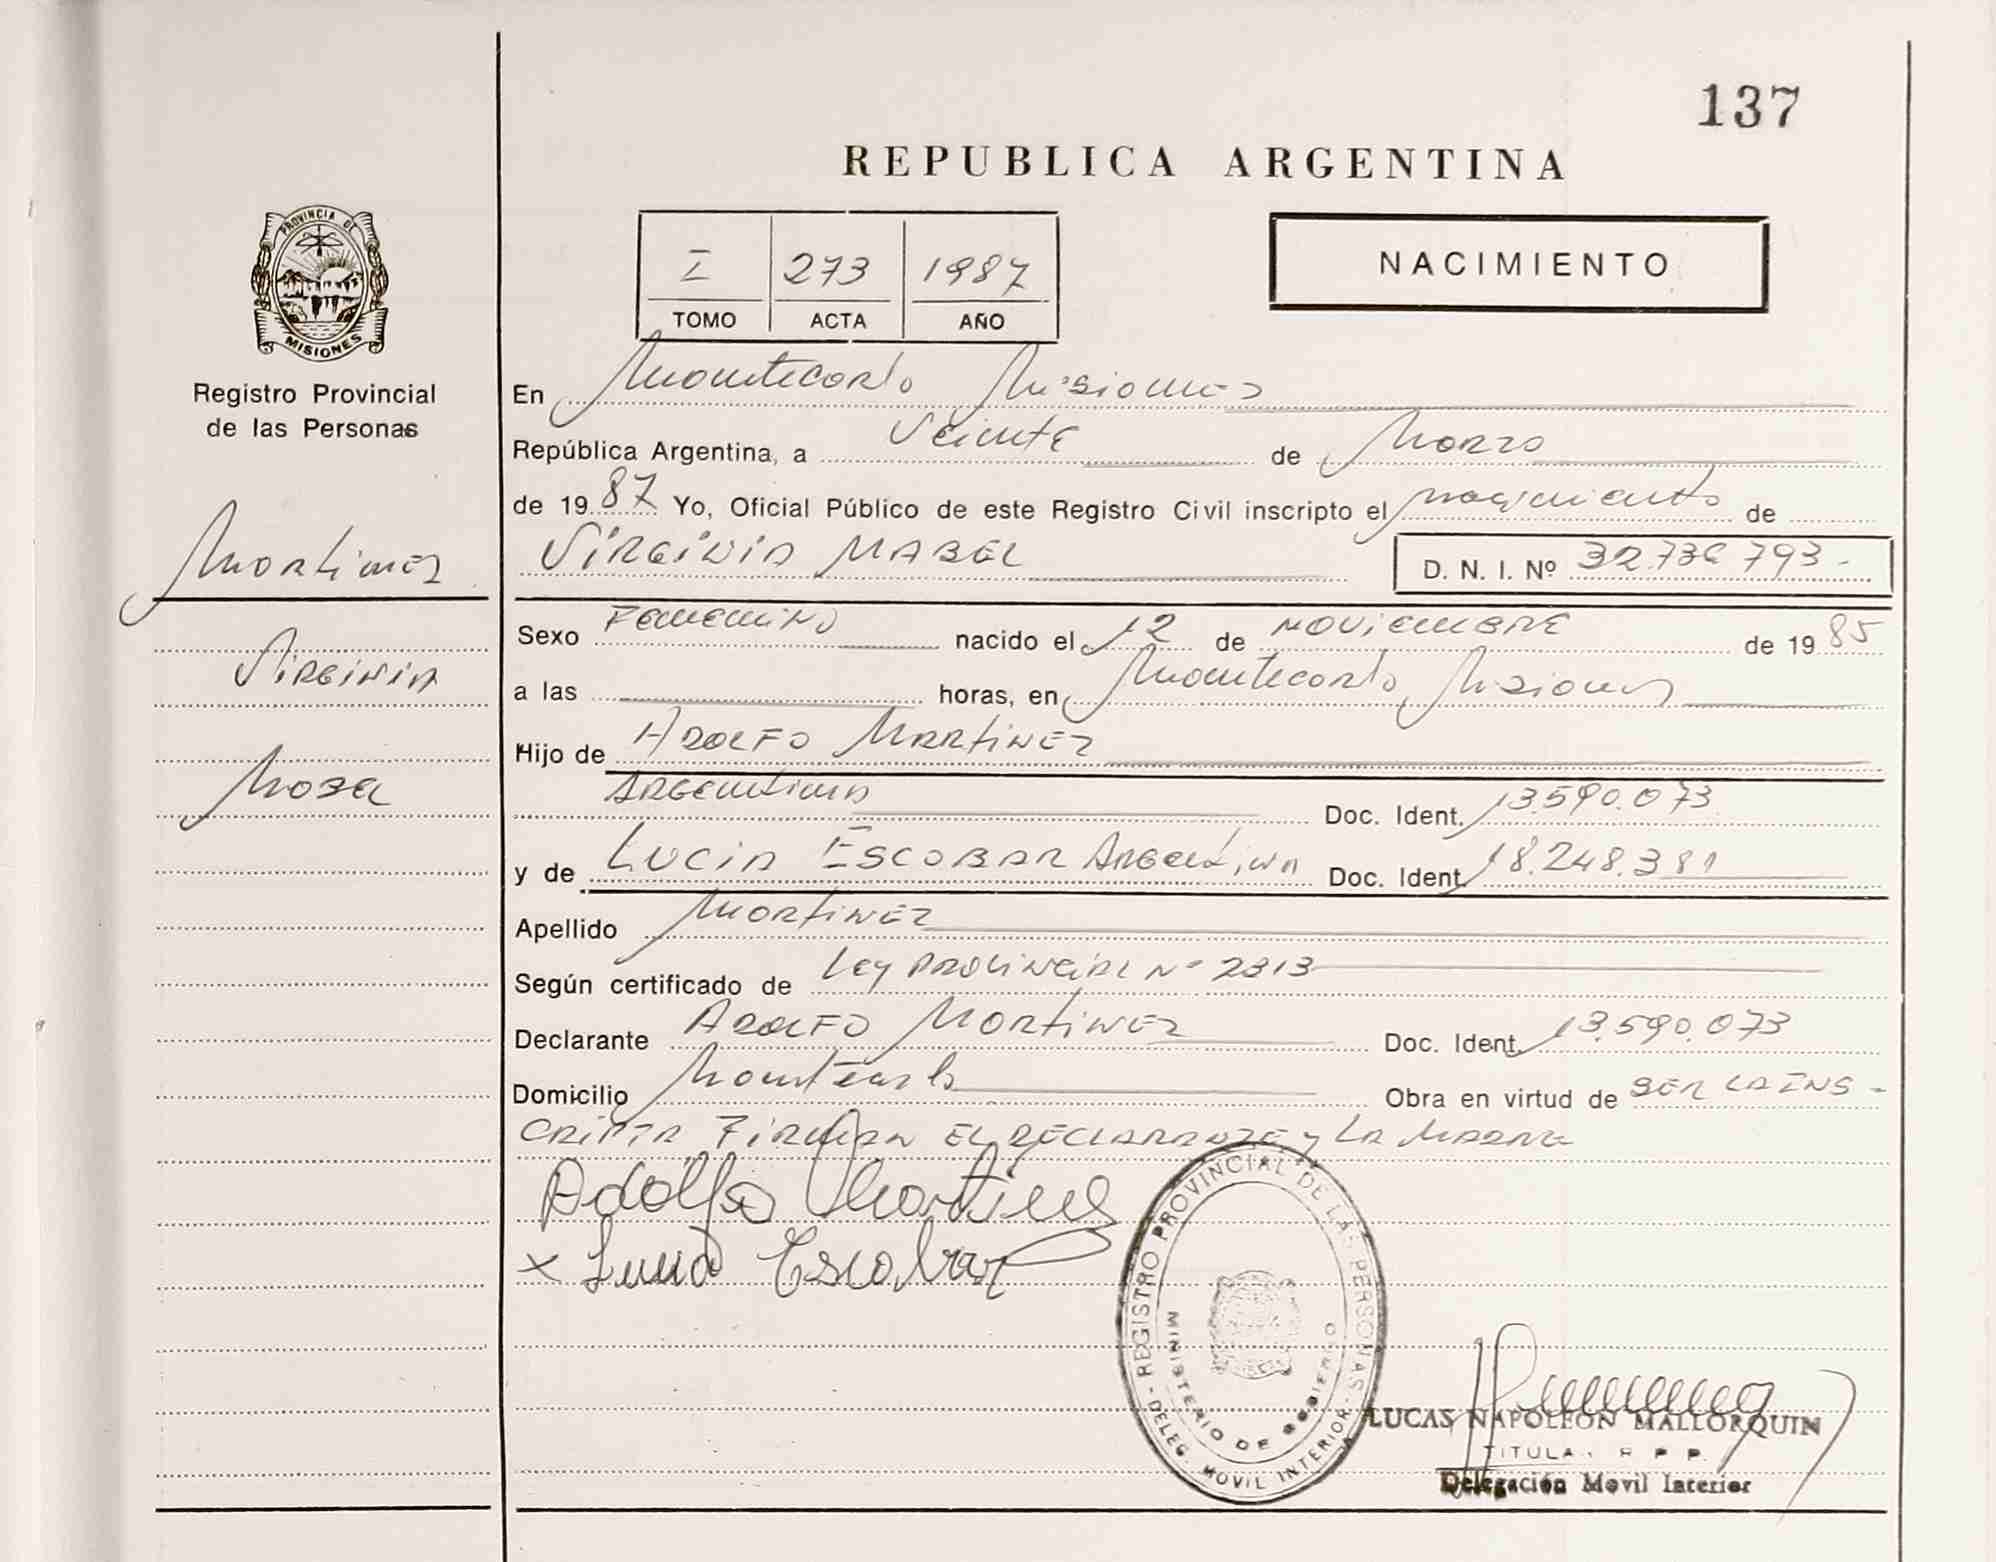 137
REPUBLICA ARGENTINA
PROVINCIA DE MISIONES
Registro Provincial
de las Personas
I 273 1987
TOMO ACTA AÑO
NACIMIENTO
En Montecarlo Misiones
República Argentina, a Veinte de Marzo
de 1987 Yo, Oficial Público de este Registro Civil inscripto el nacimiento de
Martinez
VIRGINIA MABEL D. N. I. Nº 32.736.793-
Sexo FEMENINO nacido el 12 de NOVIEMBRE de 1985
Virginia
a las horas, en Montecarlo, Misiones
Hijo de ADOLFO MARTINEZ
Mabel
Argentino Doc. Ident. 13.590.073
y de LUCIA ESCOBAR Argentina Doc. Ident. 18.248.381
Apellido MARTINEZ
Según certificado de Ley PROVINCIAL Nº 2313
Declarante ADOLFO MARTINEZ Doc. Ident. 13.590.073
Domicilio Montecarlo Obra en virtud de SER LA INS-
CRIPTA FIRMAN EL DECLARANTE y LA MADRE
Adolfo Martinez
x Lucia Escobar
REGISTRO PROVINCIAL DE LAS PERSONAS - DELEG. MOVIL INTERIOR -
MINISTERIO DE GOBIERNO
LUCAS NAPOLEON MALLORQUIN
TITULAR R P P.
Delegación Movil Interior